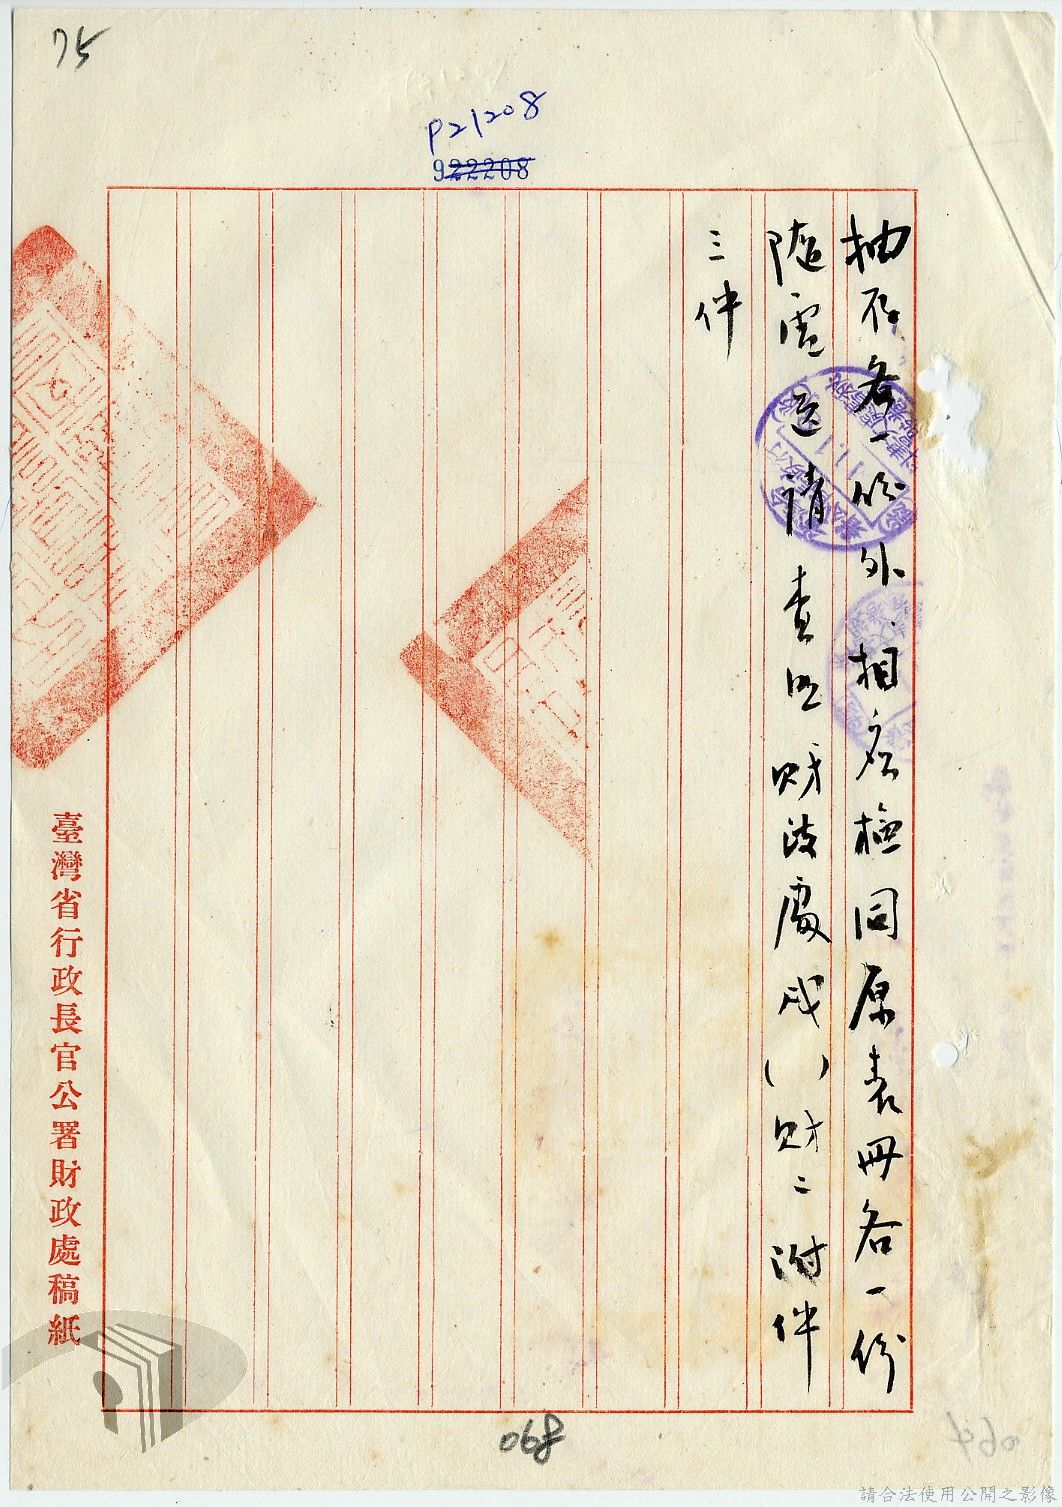 75
P21208
922208
抽存各一份外、相应檢同原表冊各一份
隨電送請 查照財政處戌( )財二附件
三件
臺灣省行政長官公署財政處稿紙
068
請合法使用公開之影像